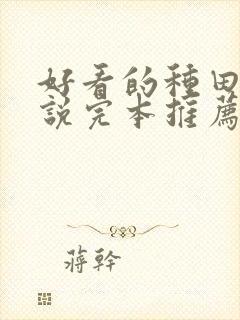 好看的種田
說完本推薦
蔣幹